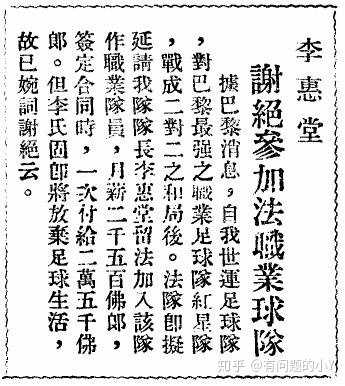 李惠堂
謝絕參加法職業球隊
據巴黎消息，自我世運足球隊
，對巴黎最强之職業足球隊紅星隊
，戰成二對二之和局後。法隊卽擬
延請我隊隊長李惠堂留法加入該隊
作職業隊員，月薪二千五百佛郎，
簽定合同時，一次付給二萬五千佛
郎。但李氏因卽將放棄足球生活，
故已婉詞謝絕云。
知乎 @有问题的小Y